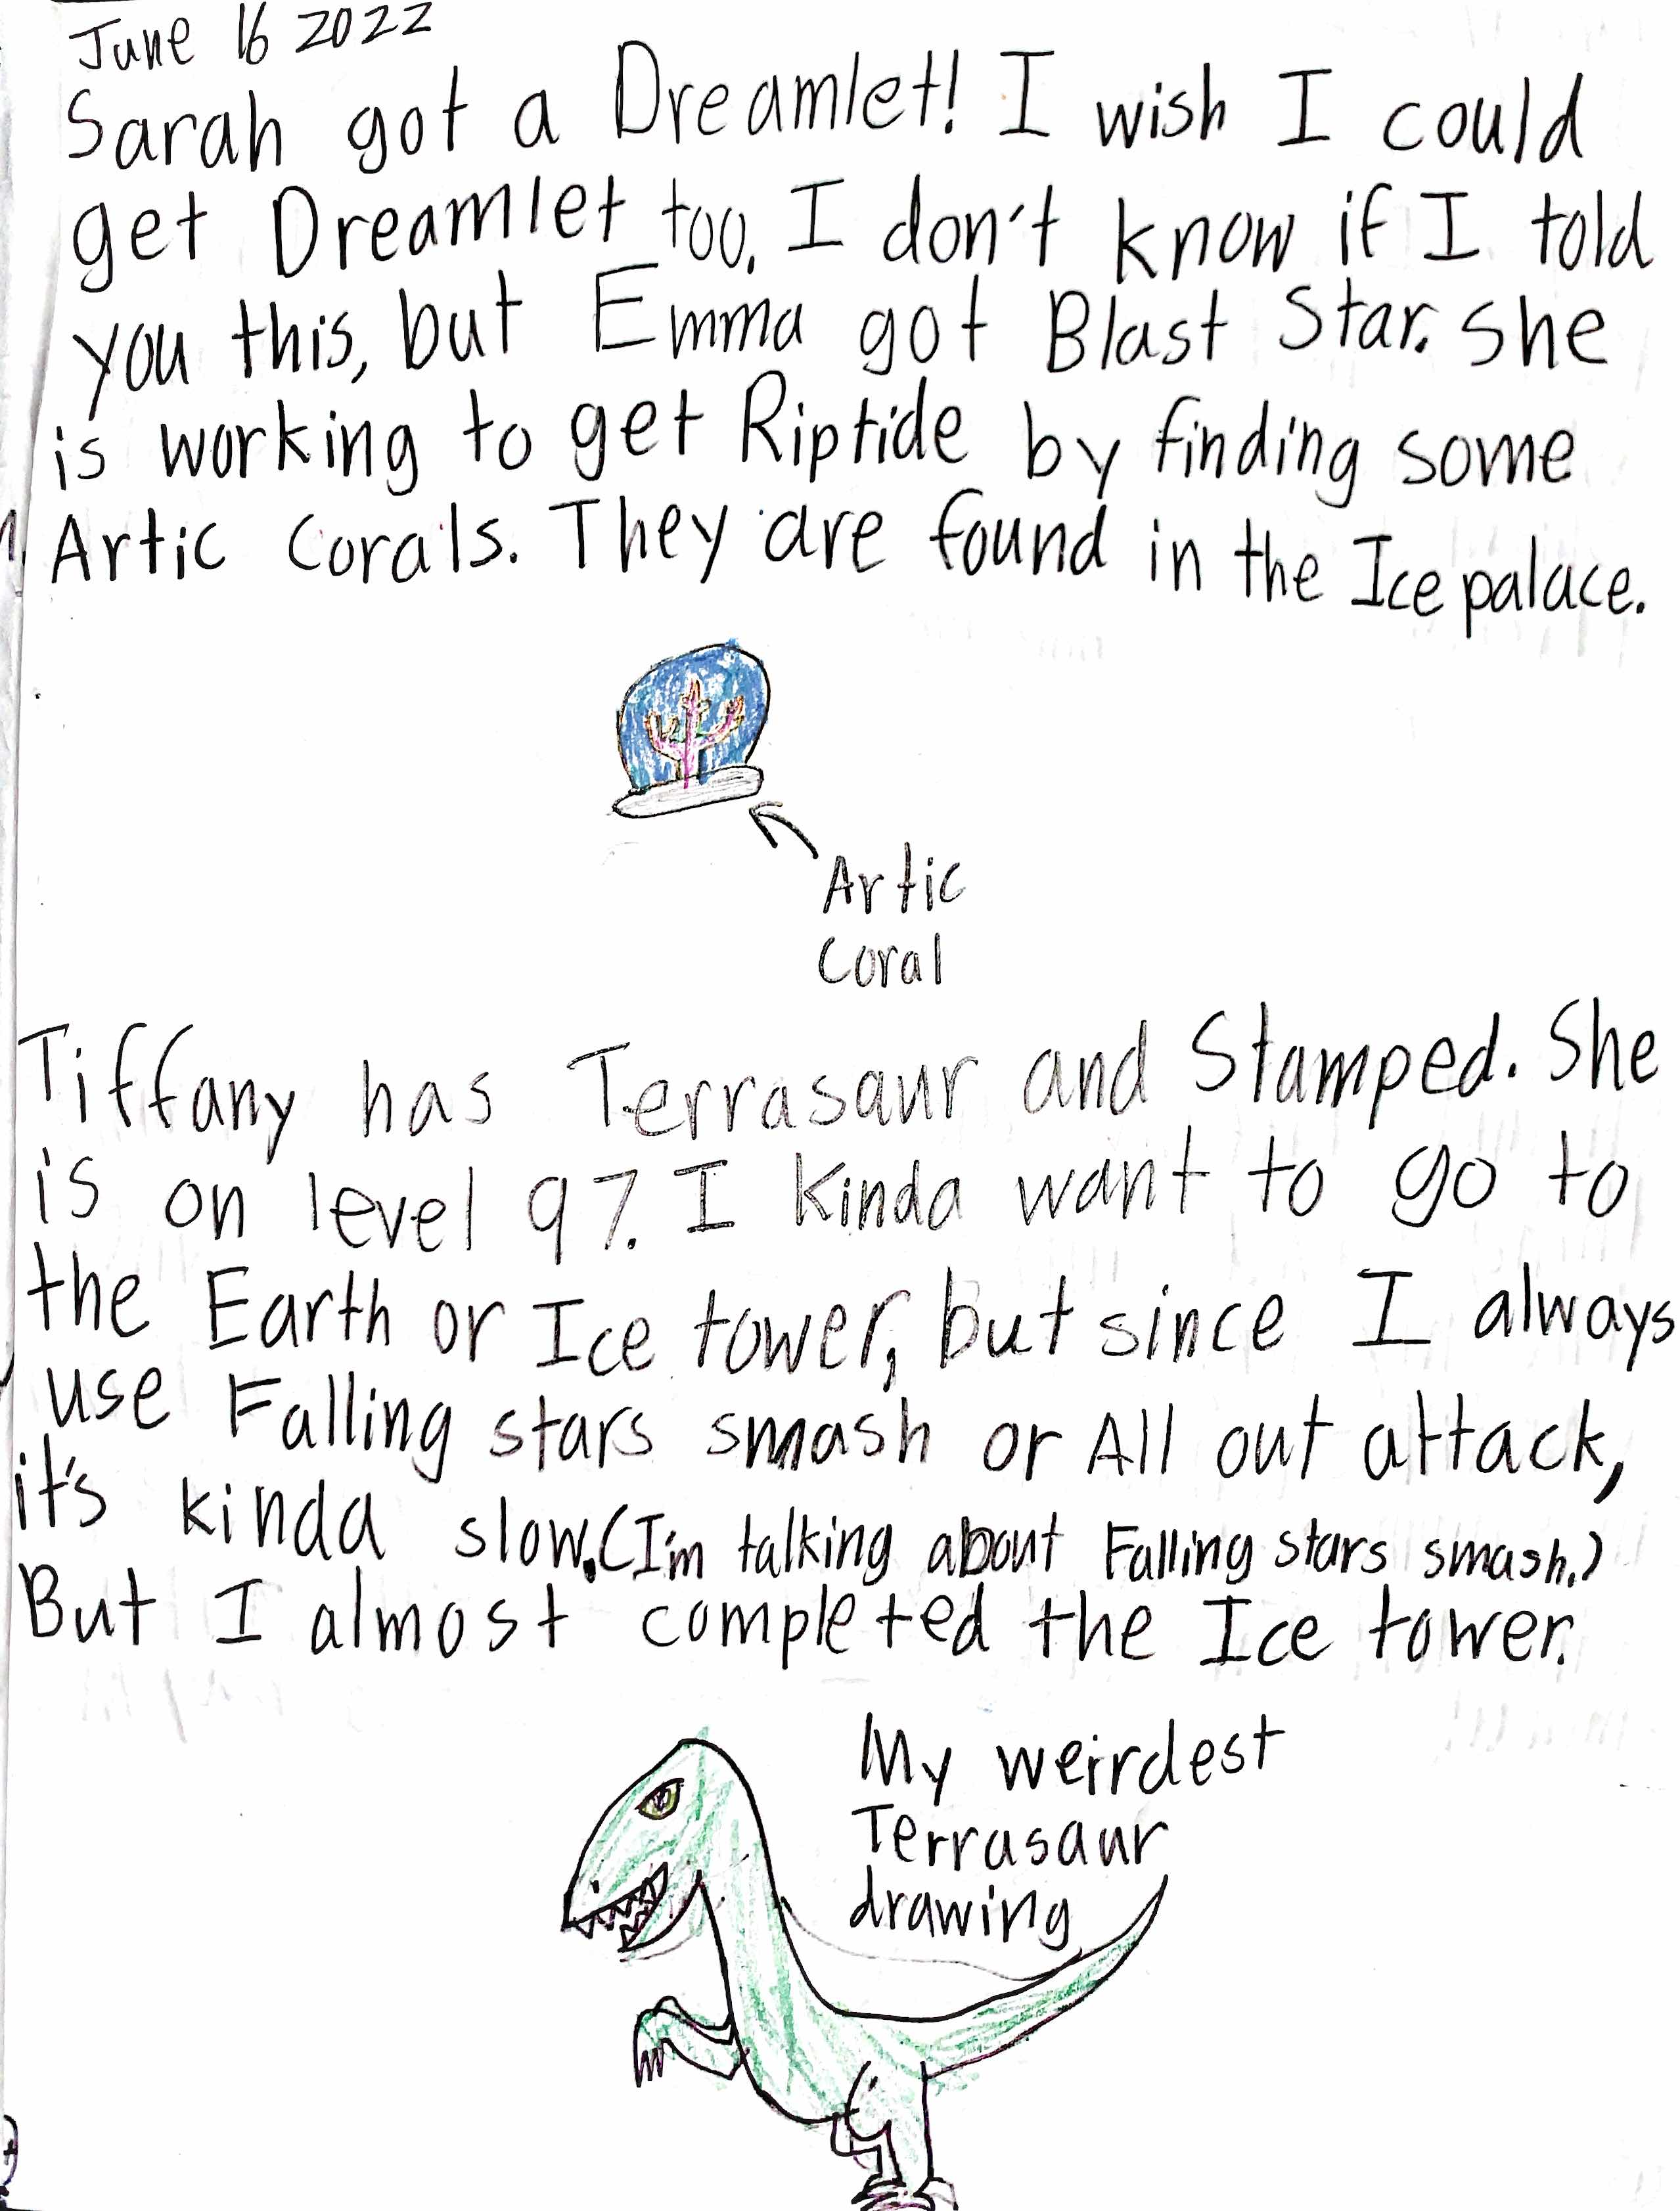 June 16 2022
Sarah got a Dreamlet! I wish I could
get Dreamlet too. I don't know if I told
you this, but Emma got Blast Star. She
is working to get Riptide by finding some
Artic Corals. They are found in the Ice palace.
Artic
Coral
Tiffany has Terrasaur and Stamped. She
is on level 97. I kinda want to go to
the Earth or Ice tower, but since I always
use Falling stars smash or All out attack,
it's kinda slow. (I'm talking about Falling stars smash.)
But I almost completed the Ice tower.
My weirdest
Terrasaur
drawing